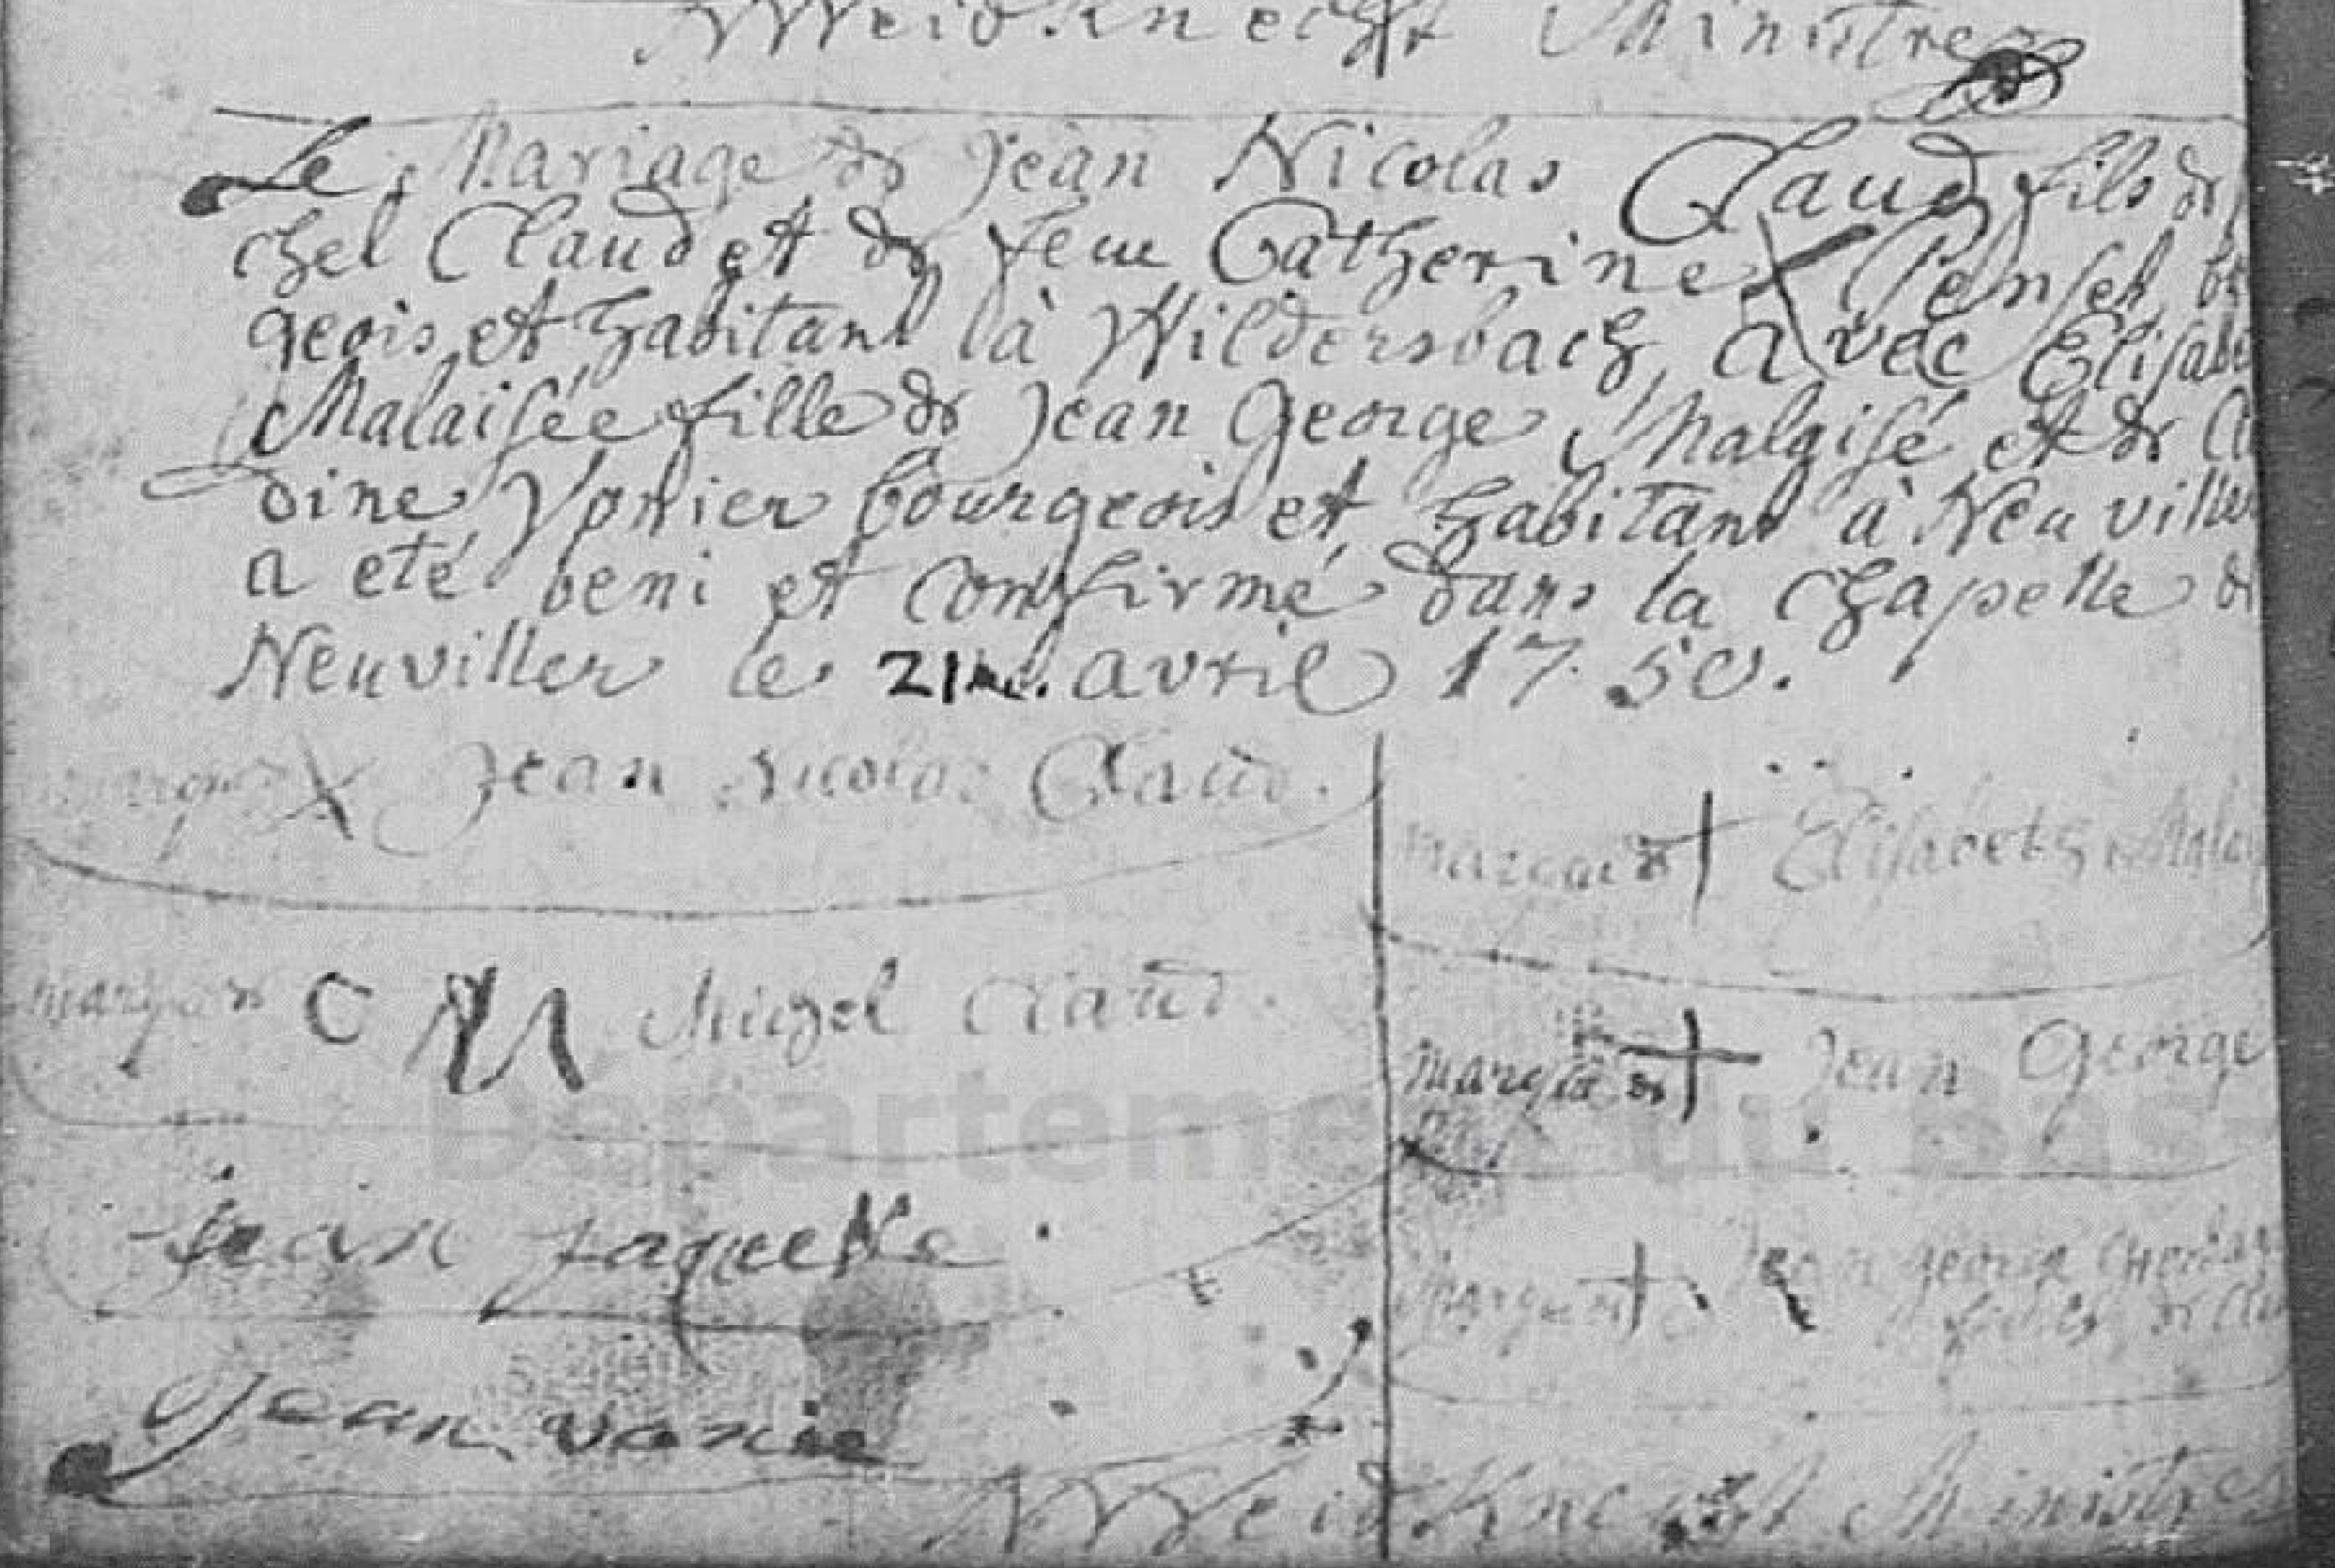 Weidknecht Ministre
Le Mariage de Jean Nicolas Claud fils de
chel Claud et de feue Catherine
geois et habitant là Wildersbach, avec Elisabe
Malaisée fille de Jean George Malaisé et de Cl
dine bourgeois et habitant à Neuviller
a eté beni et confirmé dans la chapelle de
Neuviller le 21me. avril 1750.
marque Jean Nicolas Claud.
marque de + Elisabeth Malai
marque de C M Michel Claud.
marque de + Jean George
Jean jaquelle.
marque + Jean george
Jean vonie
Weidknecht Ministre